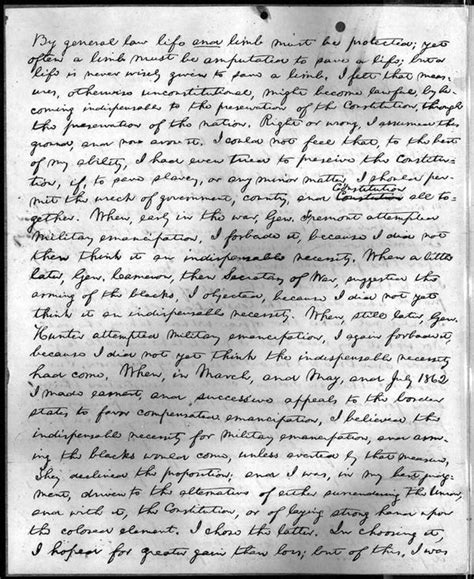 By general law life and limb must be protected; yet
often a limb must be amputated to save a life; but a
life is never wisely given to save a limb. I felt that meas-
ures, otherwise unconstitutional, might become lawful, by be-
coming indispensable to the preservation of the Constitution, through
the preservation of the nation. Right or wrong, I assumed this
ground, and now avow it. I could not feel that, to the best
of my ability, I had even tried to preserve the Constitu-
tion, if, to save slavery, or any minor matter, I should per-
mit the wreck of government, country, and Constitution all to-
gether. When, early in the war, Gen. Fremont attempted
Military emancipation, I forbade it, because I did not
then think it an indispensable necessity. When a little
later, Gen. Cameron, then Secretary of War, suggested the
arming of the blacks, I objected, because I did not yet
think it an indispensable necessity. When, still later, Gen.
Hunter attempted Military emancipation, I again forbade it,
because I did not yet think the indispensable necessity
had come. When, in March, and May, and July 1862
I made earnest, and successive appeals to the border
states to favor compensated emancipation, I believed the
indispensable necessity for Military emancipation, and arm-
ing the blacks would come, unless averted by that measure.
They declined the proposition; and I was, in my best judg-
ment, driven to the alternative of either surrendering the Union,
and with it, the Constitution, or of laying strong hand upon
the colored element. I chose the latter. In choosing it,
I hoped for greater gain than loss; but of this, I was